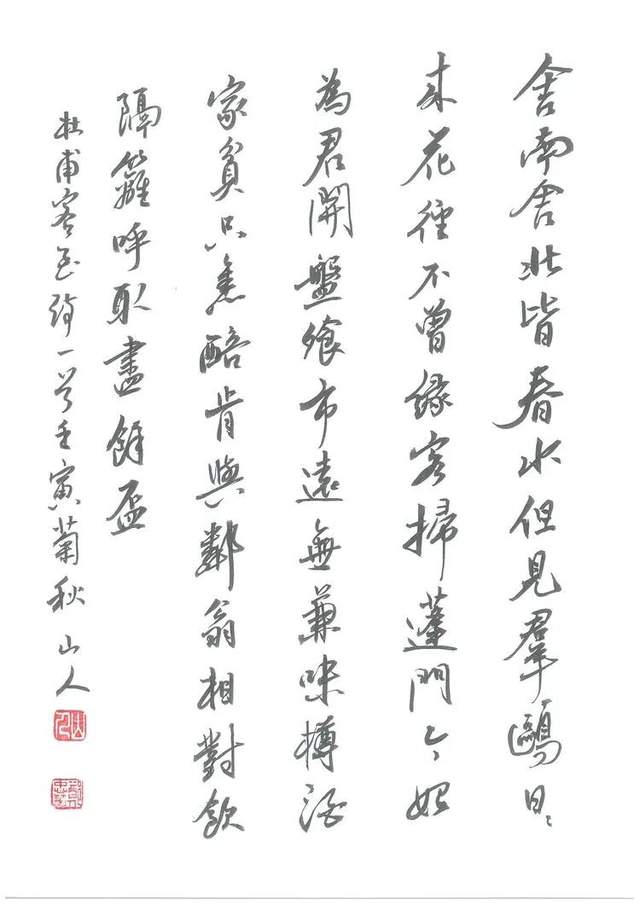 舍南舍北皆春水但見羣鷗日〻
来花徑不曾緣客掃蓬門今始
為君開盤飧市遠無兼味樽酒
家貧只舊醅肯與鄰翁相對飲
隔籬呼取盡餘盃
杜甫客至詩一首壬寅菊秋山人
山人